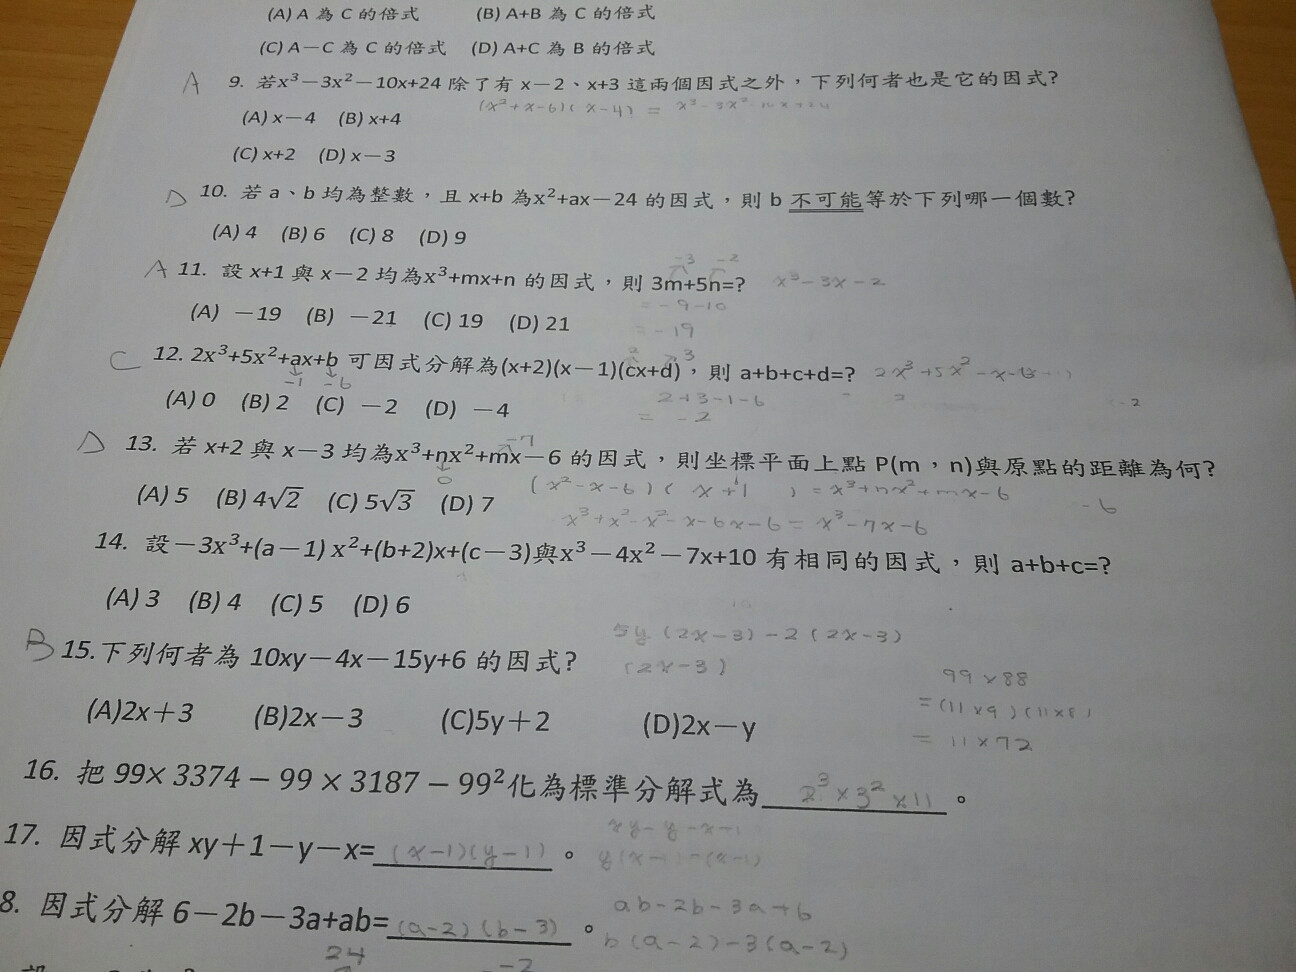 (A) A 為 C 的倍式 (B) A+B 為 C 的倍式
(C) A－C 為 C 的倍式 (D) A+C 為 B 的倍式
A 9. 若x³－3x²－10x+24 除了有 x－2、x+3 這兩個因式之外，下列何者也是它的因式?
(x²+x-6)(x-4) = x³-3x²-10x+24
(A) x－4 (B) x+4
(C) x+2 (D) x－3
D 10. 若 a、b 均為整數，且 x+b 為x²+ax－24 的因式，則 b 不可能等於下列哪一個數?
(A) 4 (B) 6 (C) 8 (D) 9
-3 -2
A 11. 設 x+1 與 x－2 均為x³+mx+n 的因式，則 3m+5n=? x³-3x-2
= -9-10
(A) －19 (B) －21 (C) 19 (D) 21
= -19
2 3
C 12. 2x³+5x²+ax+b 可因式分解為(x+2)(x－1)(cx+d)，則 a+b+c+d=? 2x³+5x²-x-6
-1 -6
(A) 0 (B) 2 (C) －2 (D) －4
2+3-1-6
= -2
-2
-7
D 13. 若 x+2 與 x－3 均為x³+nx²+mx－6 的因式，則坐標平面上點 P(m，n)與原點的距離為何?
0
(A) 5 (B) 4√2 (C) 5√3 (D) 7
(x²-x-6)(x+1) = x³+nx²+mx-6
-6
x³+x²-x²-x-6x-6 = x³-7x-6
14. 設－3x³+(a－1) x²+(b+2)x+(c－3)與x³－4x²－7x+10 有相同的因式，則 a+b+c=?
(A) 3 (B) 4 (C) 5 (D) 6
5y(2x-3)-2(2x-3)
B 15.下列何者為 10xy－4x－15y+6 的因式?
(2x-3)
(A)2x＋3 (B)2x－3 (C)5y＋2 (D)2x－y
99×88
=(11×9)(11×8)
= 11×72
16. 把 99× 3374－99 × 3187－99²化為標準分解式為 2³×3²×11 。
xy-y-x-1
17. 因式分解 xy＋1－y－x= (x-1)(y-1) 。
y(x-1)-(x-1)
8. 因式分解 6－2b－3a+ab= (a-2)(b-3) 。
ab-2b-3a+6
b(a-2)-3(a-2)
24
-2